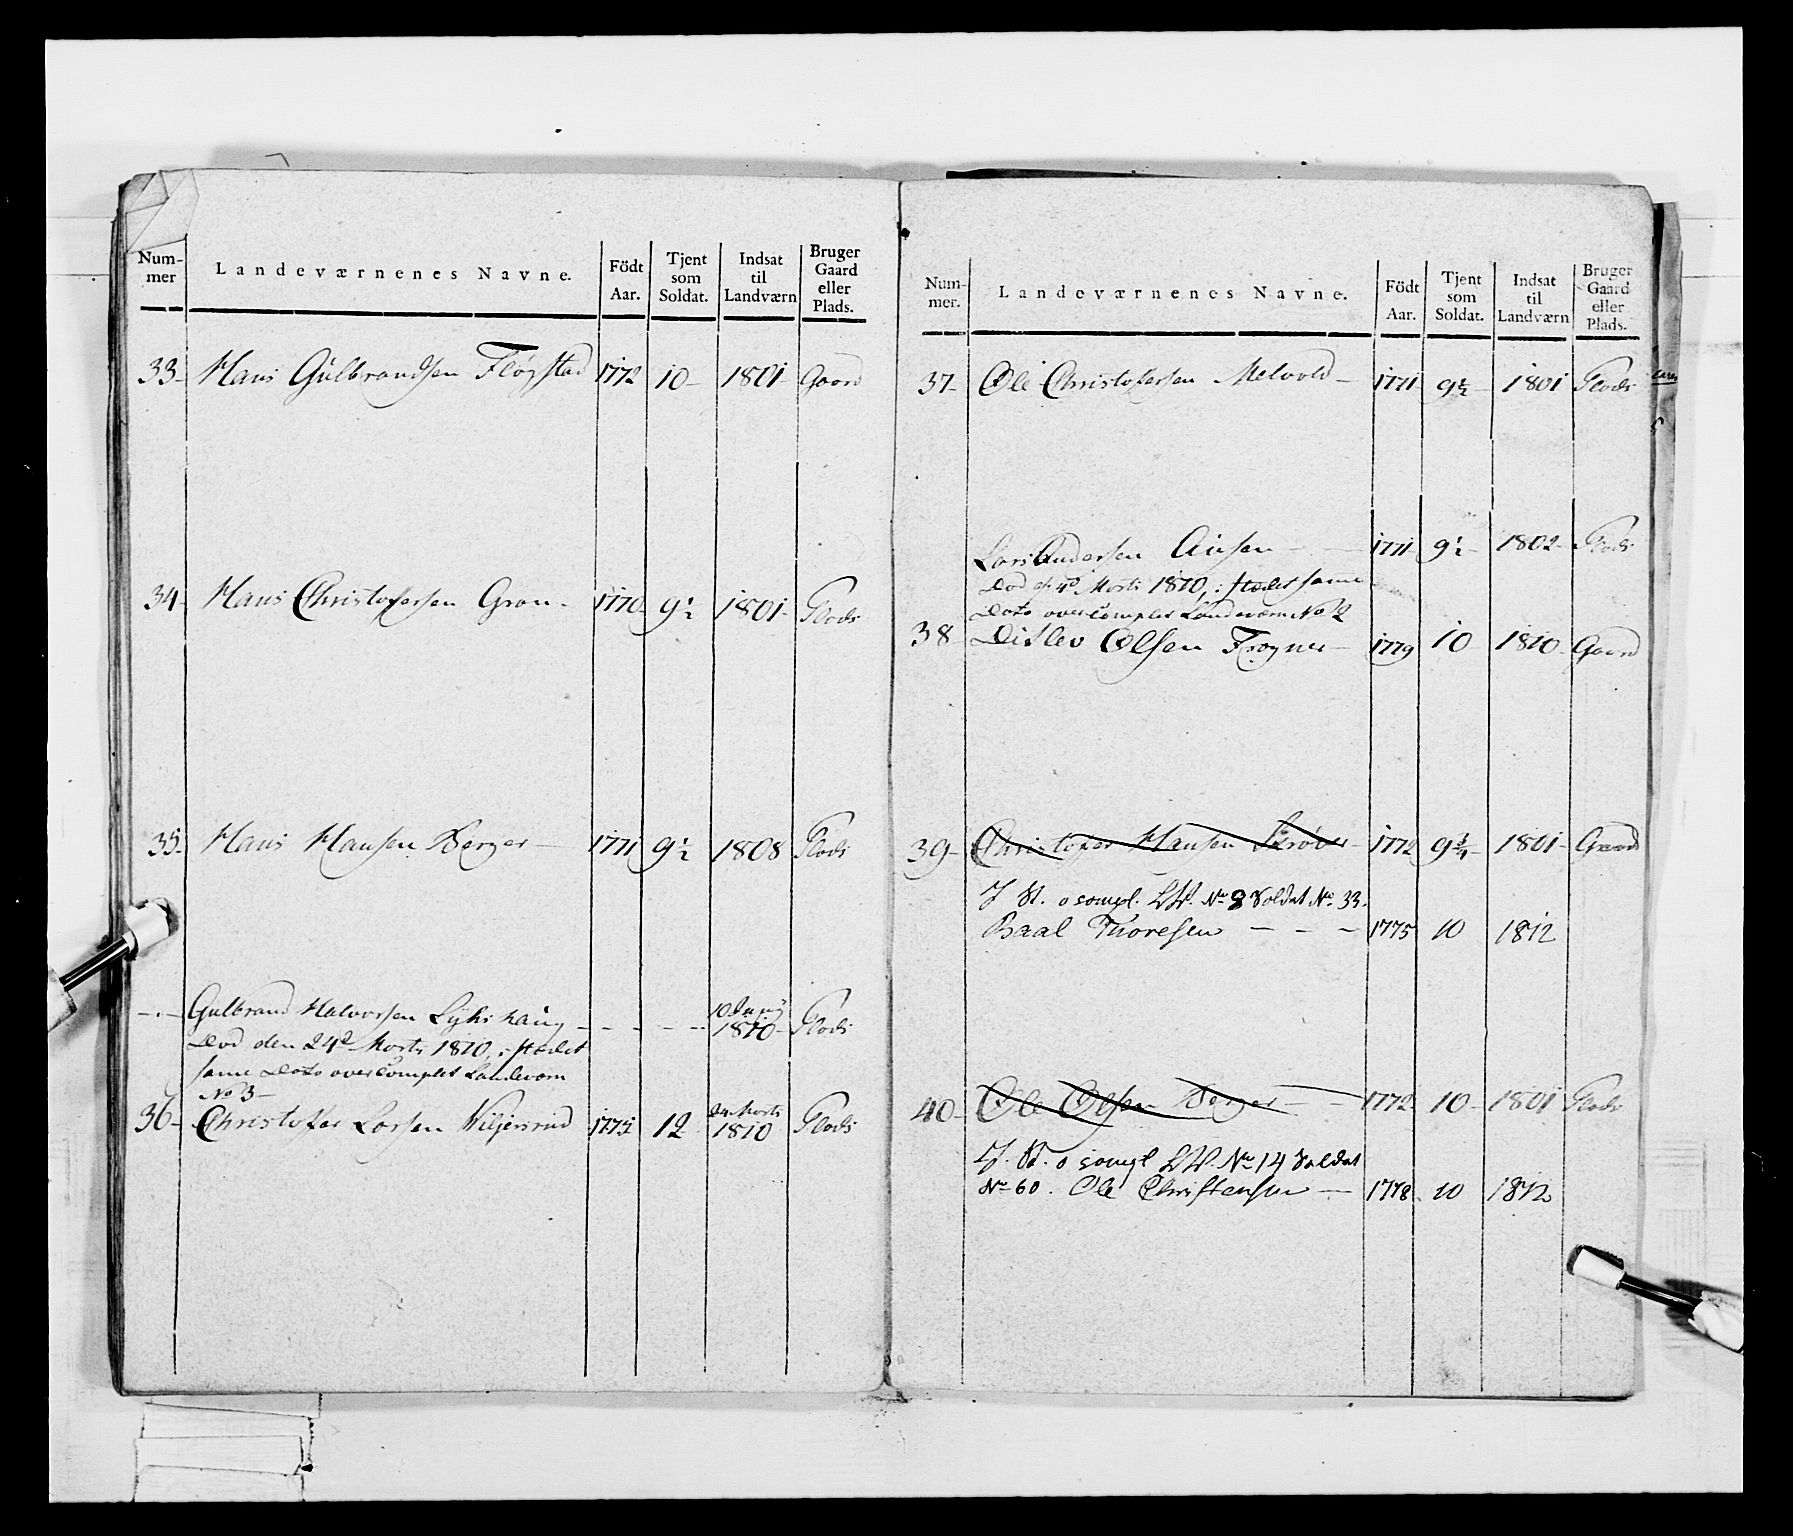 Num-
mer
Landeværnenes Navne.
Födt
Aar.
Tjent
som
Soldat.
Indsat
til
Landværn
Bruger
Gaard
eller
Plads.
33- Hans Gulbrandsen Fløgstad 1772 10- 1801- Gaard
34- Hans Christofersen Gran- 1770- 9½ 1801- Plads
35- Hans Hansen Berger- 1771 9½ 1808 Plads
Gulbrand Halvorsen - - - - 10
1810- Plads
Død den 24d Marts 1810, i stedet
same Dato overcomplet Landevern
No 3-
36- Christofer Larsen 12 24 Marts
1810 Plads
Num-
mer.
Landeværnenes Navne.
Födt
Aar.
Tjent
som
Soldat.
Indsat
til
Landværn
Bruger
Gaard
eller
Plads.
37- Ole Christofersen Melvold- 1771 9½ 1801 Plads
Lars Andersen - - 1771 9½- 1802- Plads
Død d. 4d Marts 1810, i stedet same
Dato overcomplet Landeværn No 2
38- Ditlev Olsen Frogner- 1779 10 1810- Gaard
39- Christofer Hansen 1772 9¾ 1801- Gaard
I St. o compl. LW. No 8 Soldat No. 33.
Paal Thoresen - - - 1775 10 1812
40- Ole Olsen Berger - - 1772- 10- 1801 Plads
I. St. o compl LW. No 14 Soldat
No 60. Ole Christensen - 1778. 10 1812